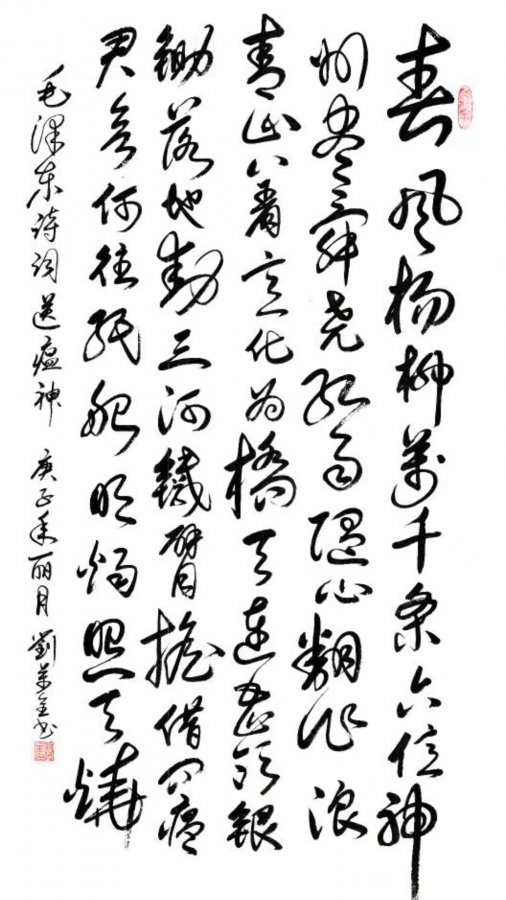 春风杨柳萬千条六億神
州尽舜尧红雨随心翻作浪
青山着意化为橋天连五岭銀
锄落地动三河鐵臂摇借问瘟
君欲何往纸船明烛照天燒
毛泽东诗词送瘟神 庚子年丽月 劉萬书